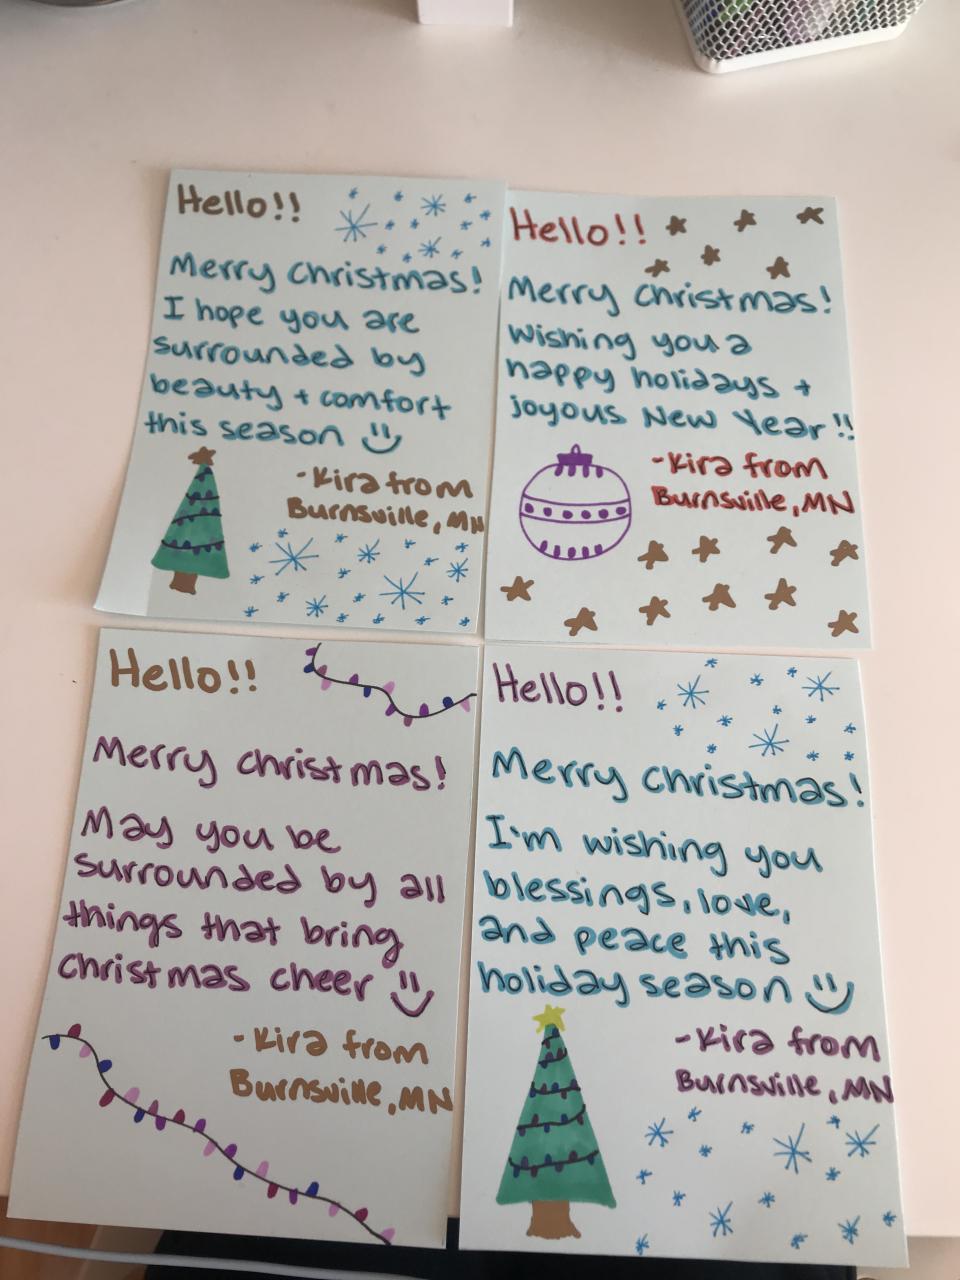 Hello!!
Merry Christmas!
I hope you are
surrounded by
beauty + comfort
this season
-Kira from
Burnsville, MN
Hello!!
Merry Christmas!
Wishing you a
happy holidays +
joyous New Year!!
-Kira from
Burnsville, MN
Hello!!
Merry Christmas!
May you be
surrounded by all
things that bring
Christmas cheer
-Kira from
Burnsville, MN
Hello!!
Merry Christmas!
I'm wishing you
blessings, love,
and peace this
holiday season
-Kira from
Burnsville, MN